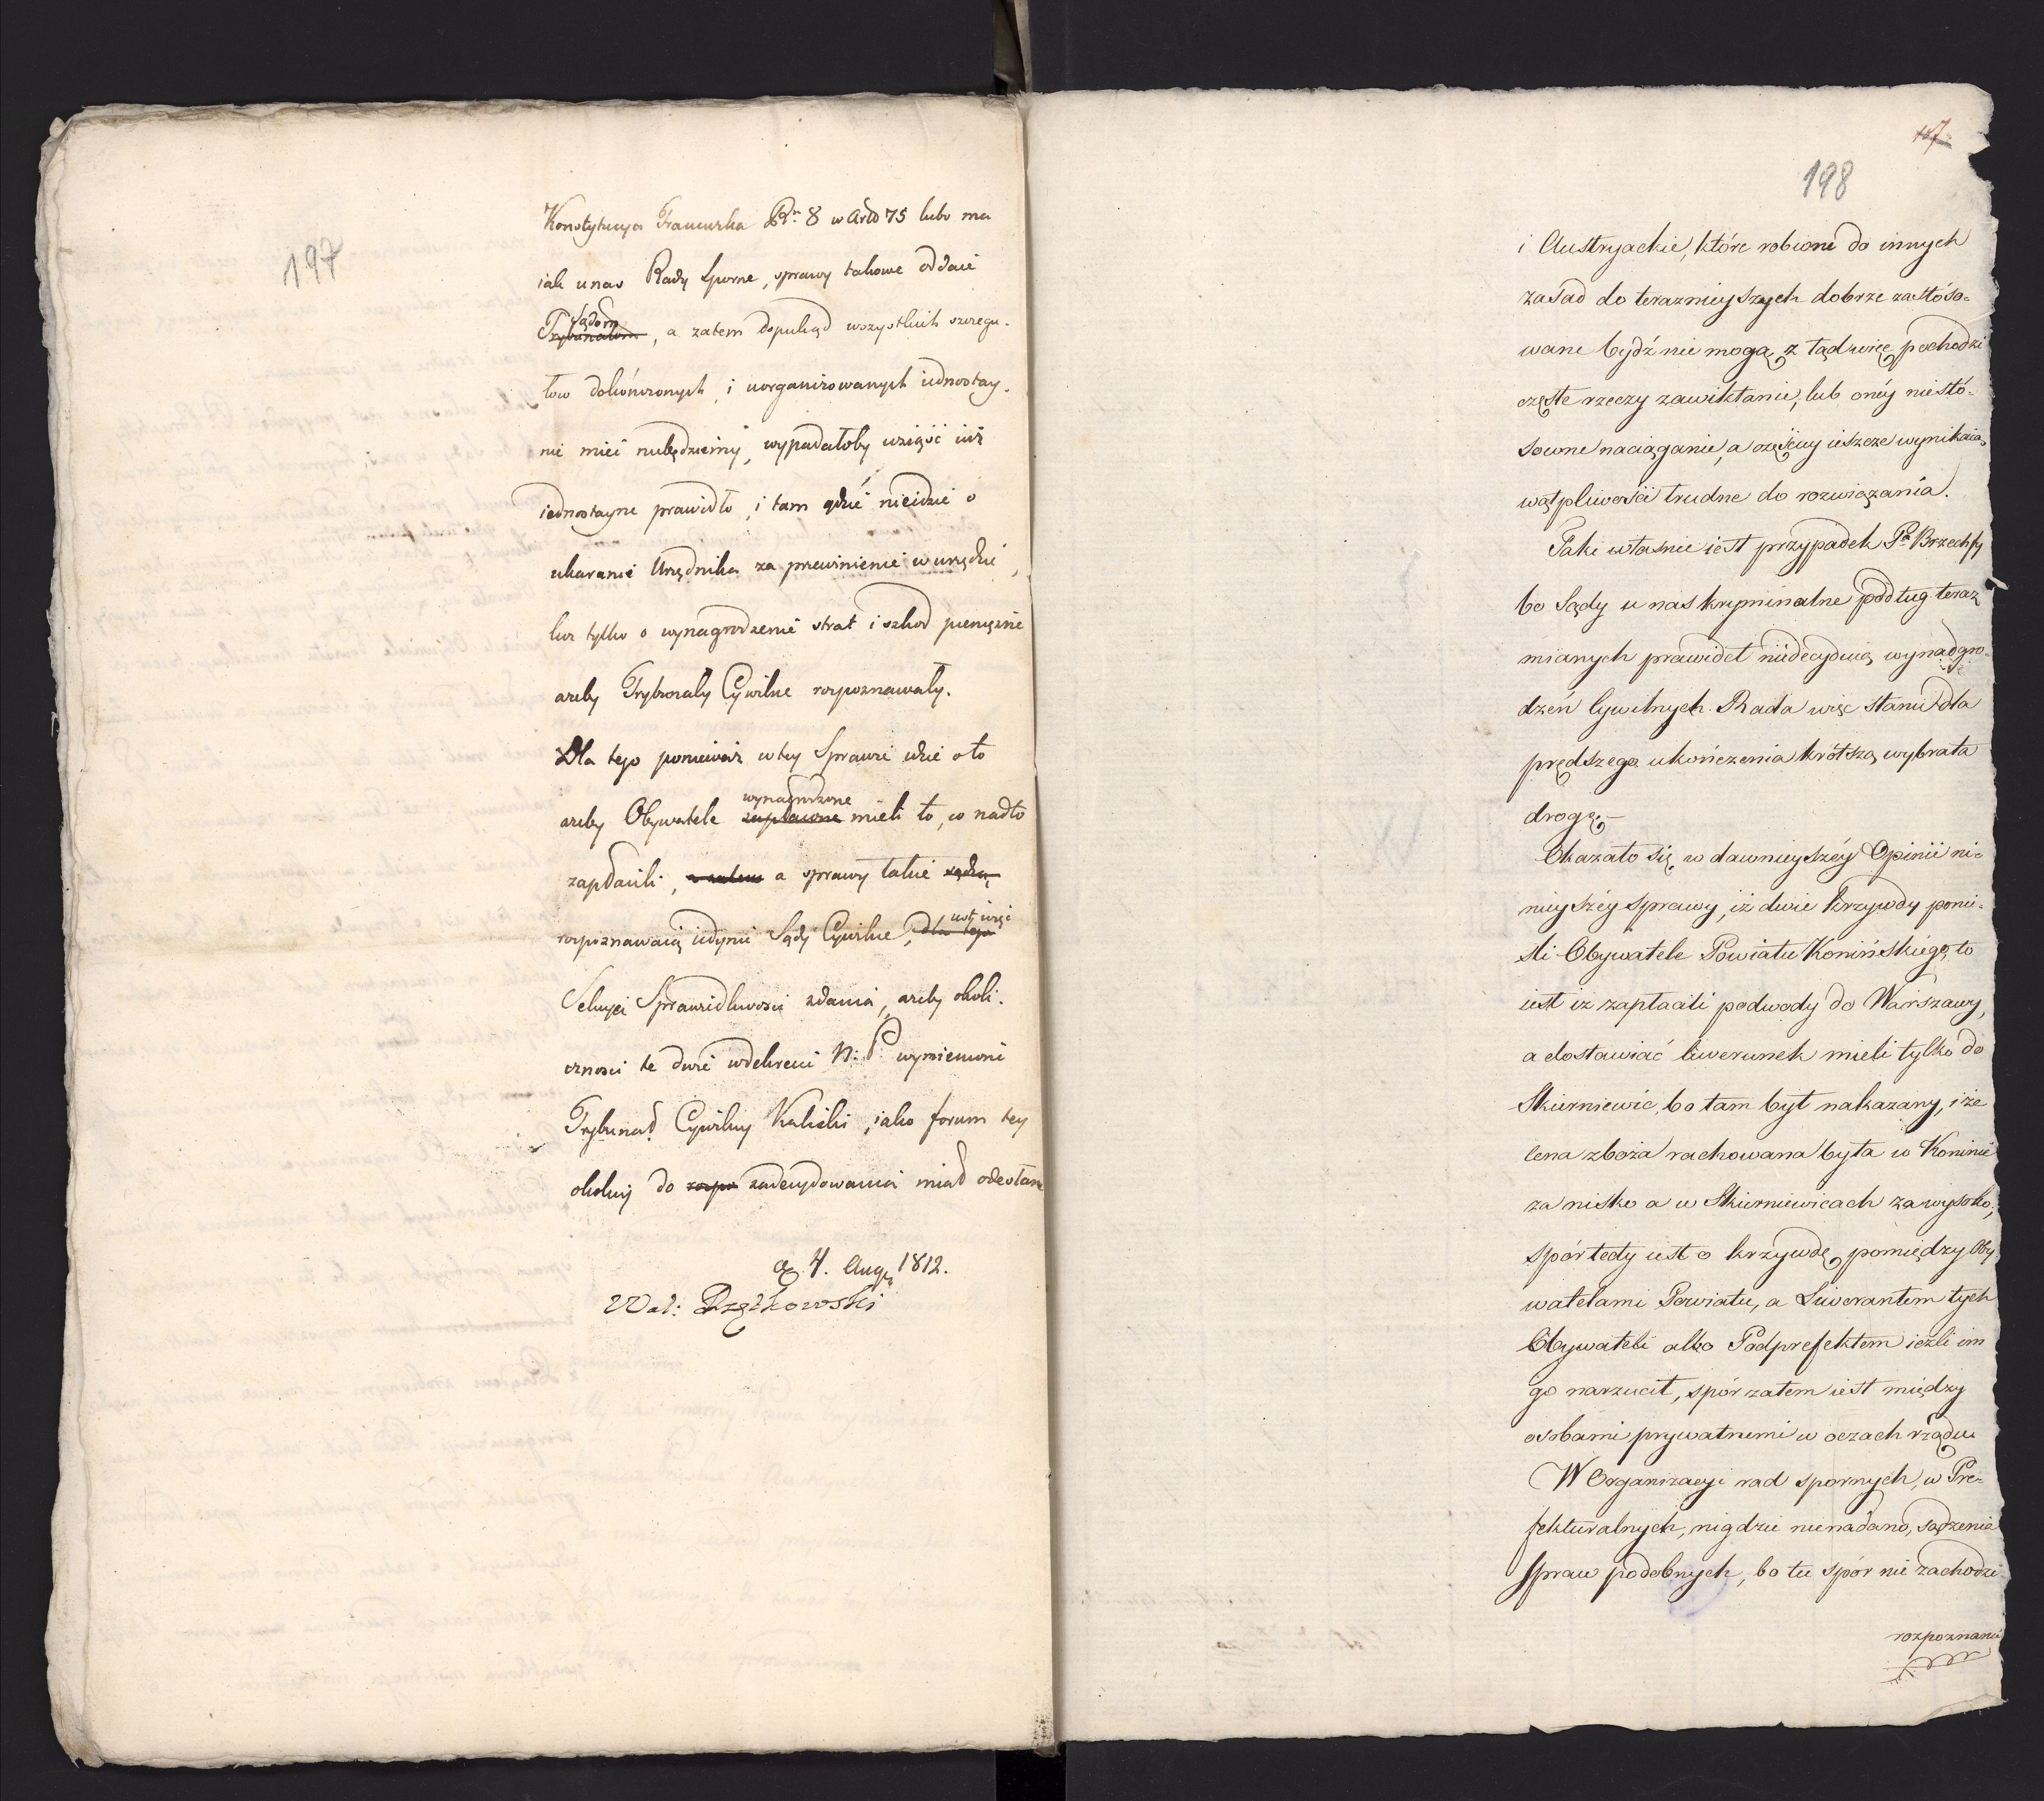 197
Konstytucya Francuska Rn. 8 w Art 75 lubo ma
iak u nas Rady Sporne, sprawy takowe oddaie
Trybunałom Sądom, a zatem dopokąd wszystkich szczegu-
łow dokończonych, i uorganizowanych iednostay-
nie mieć niebędziemy, wypadałoby wziąść iuż
iednostayne prawidło, i tam gdzie nieidzie o
ukaranie Urzędnika za przewinienie w urzędzie,
lecz tylko o wynagrodzenie strat i szkod pieniężne
ażeby Trybunały Cywilne rozpoznawały.
Dla tego ponieważ w tey Sprawie idzie o to
ażeby Obywatele zapłacone wynagrodzone mieli to, co nadto
zapłacili, a zatem a sprawy takie sądzą
rozpoznawaią iedynie Sądy Cywilne, dla tego iest więc
Sekcyi Sprawiedliwości zdania, ażeby okoli-
czności te dwie w dekrecie N: P. wymienione
Trybunał Cywilny Kaliski, iako forum tey
okolicy do rozpo zadecydowania miał odesłane
d. 4. Aug. 1812.
Wal: Rządkowski
107
198
i Austryackie, które robione do innych
zasad do teraznieyszych dobrze zastóso-
wane bydź nie mogą, z tąd więc pochodzi
częste rzeczy zawikłanie, lub onéy niestó-
sowne naciąganie, a częściey ieszcze wynikaią
wątpliwości trudne do rozwiązania.
Taki własnie iest przypadek Pa Brzechfy
bo Sądy u nas kryminalne podług teraz
mianych prawideł niedecyduią wynadgro-
dzeń Cywilnych. Rada więc stanu dla
prędszego ukończenia krótszą wybrała
drogę.-
Okazało się w dawnieyszéy Opinii ni-
nieyszéy sprawy, iż dwie krzywdy ponie-
śli Obywatele Powiatu Konińskiego, to
iest iż zapłacili podwody do Warszawy,
a dostawiać liwerunek mieli tylko do
Skierniewic, bo tam był nakazany, i że
Cena zboża rachowana była w Koninie
za nisko a w Skierniewicach za wysoko;
spór tedy iest o krzywdę pomiędzy Oby
watelami Powiatu, a Liwerantem tych
Obywateli albo Podprefektem ieżli im
go narzucił, spór zatem iest między
osobami prywatnemi w oczach rządu.
W Organizacyi rad spornych, w Pre-
fekturalnych, nigdzie nienadano, sądzenia
spraw podobnych, bo tu spór nie zachodzi
rozpoznanie